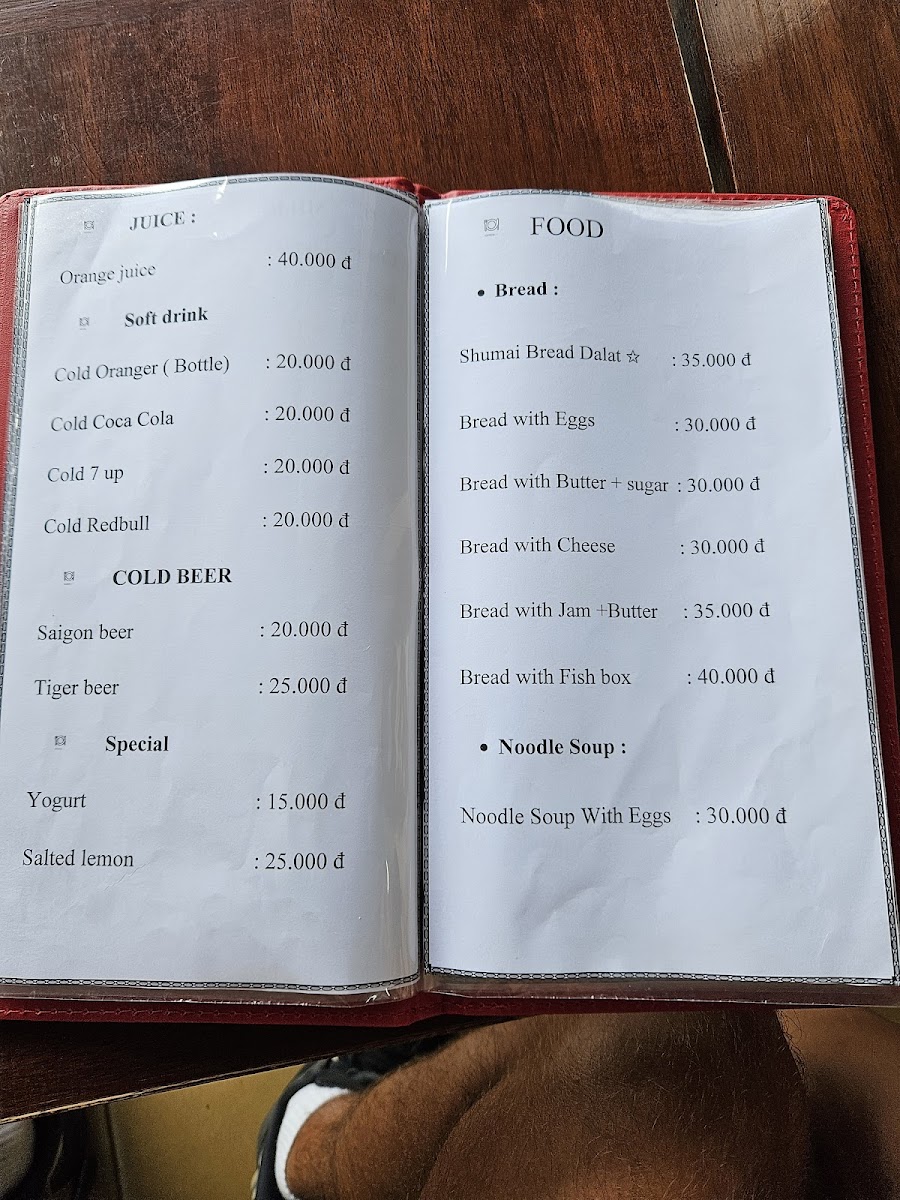 JUICE :
Orange juice : 40.000 đ
Soft drink
Cold Oranger ( Bottle) : 20.000 đ
Cold Coca Cola : 20.000 đ
Cold 7 up : 20.000 đ
Cold Redbull : 20.000 đ
COLD BEER
Saigon beer : 20.000 đ
Tiger beer : 25.000 đ
Special
Yogurt : 15.000 đ
Salted lemon : 25.000 đ
FOOD
• Bread :
Shumai Bread Dalat ☆ : 35.000 đ
Bread with Eggs : 30.000 đ
Bread with Butter + sugar : 30.000 đ
Bread with Cheese : 30.000 đ
Bread with Jam +Butter : 35.000 đ
Bread with Fish box : 40.000 đ
• Noodle Soup :
Noodle Soup With Eggs : 30.000 đ